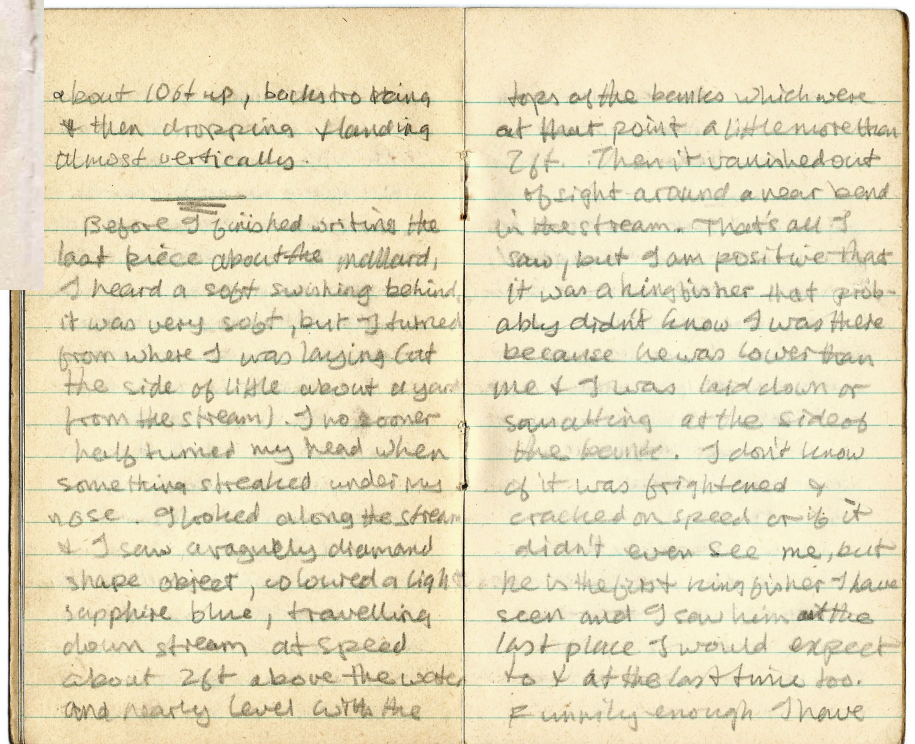 about 10ft up, backstroking
& then dropping & landing
almost vertically.
Before I finished writing the
last piece about the mallard,
I heard a soft swishing behind,
it was very soft, but I turned
from where I was laying (at
the side of little about a yard
from the stream). I no sooner
half turned my head when
something streaked under my
nose. I looked along the stream
& I saw a vaguely diamond
shape object, coloured a light
sapphire blue, travelling
down stream at speed
about 2ft above the water
and nearly level with the
tops of the banks which were
at that point a little more than
2ft. Then it vanished out
of sight around a near bend
in the stream. That's all I
saw, but I am positive that
it was a kingfisher that prob-
ably didn't know I was there
because he was lower than
me & I was laid down or
at the side of
the bank. I don't know
if it was frightened &
cracked on speed or if it
didn't even see me, but
he is the first kingfisher I have
seen and I saw him at the
last place I would expect
to & at the last time too.
Funnily enough I have